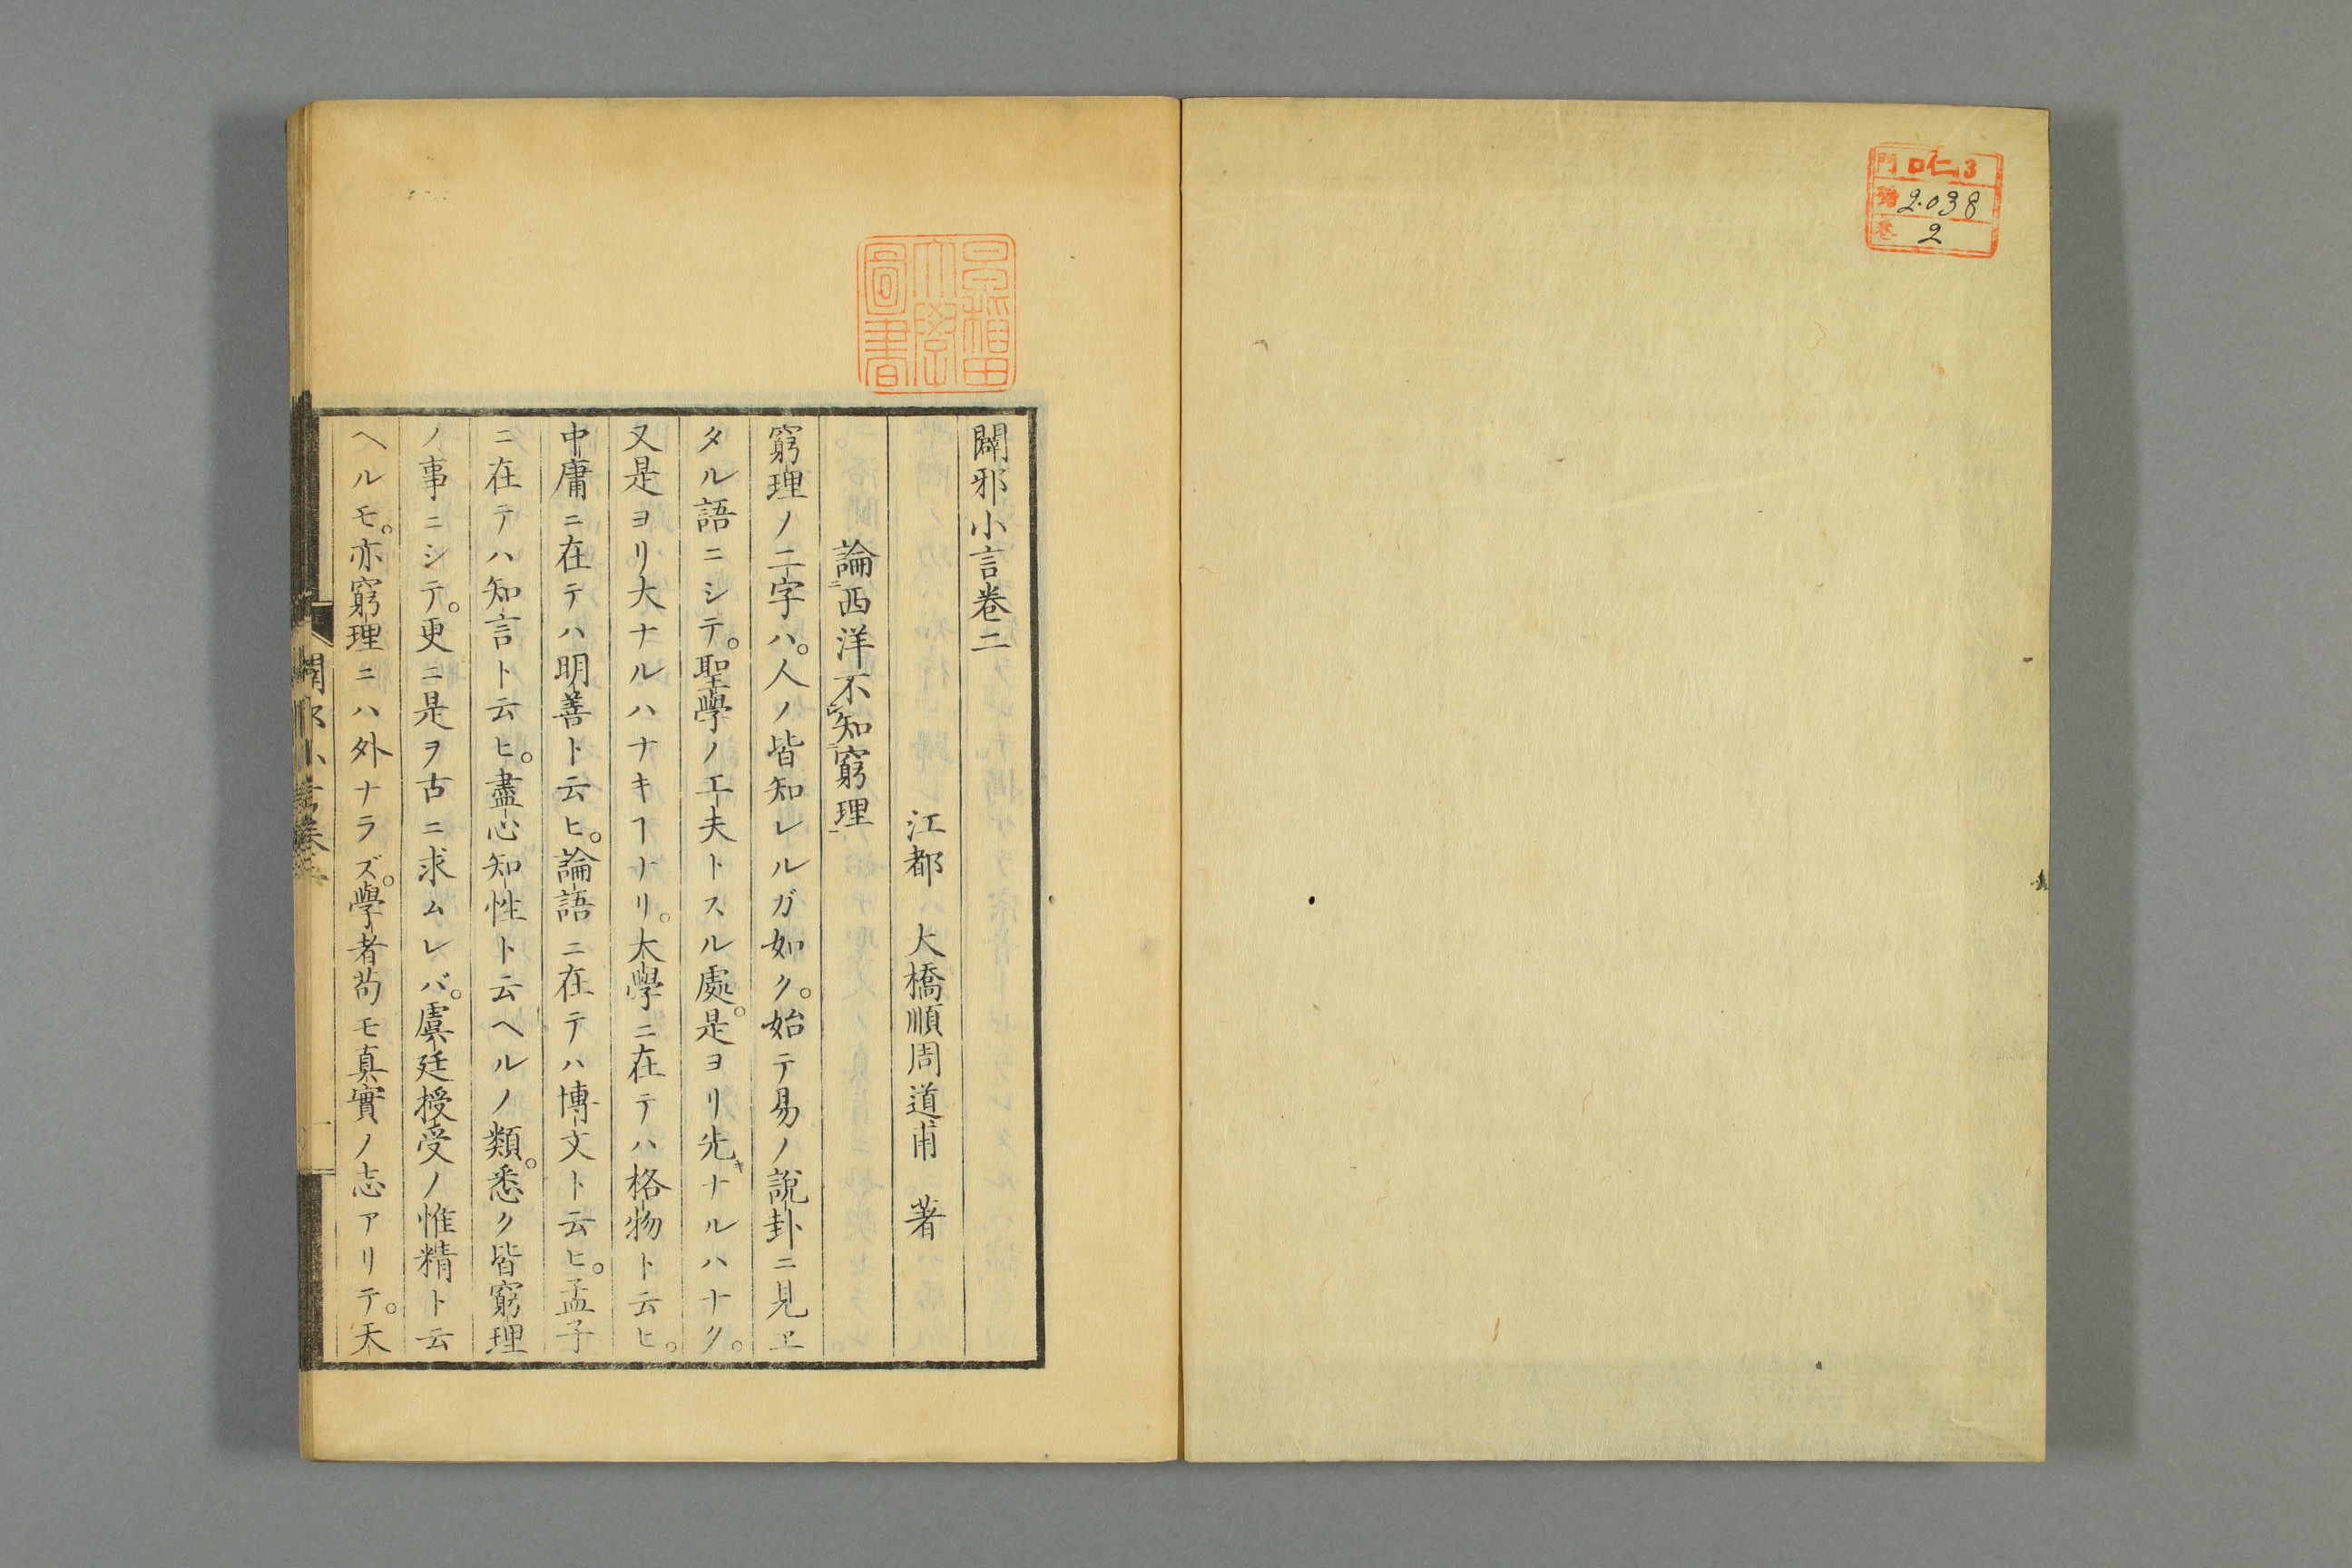 門 ロ仁13
號 2.038
巻 2
早稲田
大學
圖書
闢邪小言卷二
江都 大橋順周道甫 著
論㆓西洋不㆒㆑知㆓窮理㆒
窮理ノ二字ハ。人ノ皆知レルガ如ク。始テ易ノ說卦ニ見ヱ
タル語ニシテ。聖學ノ工夫トスル處。是ヨリ先キナルハナク。
又是ヨリ大ナルハナキヿナリ。大學ニ在テハ格物ト云ヒ。
中庸ニ在テハ明善ト云ヒ。論語ニ在テハ博文ト云ヒ。孟子
ニ在テハ知言ト云ヒ。盡心知性ト云ヘルノ類。悉ク皆窮理
ノ事ニシテ。更ニ是ヲ古ニ求ムレバ。虞廷授受ノ惟精ト云
ヘルモ。亦窮理ニハ外ナラズ。學者苟モ真實ノ志アリテ。天
闢邪小言卷二
一